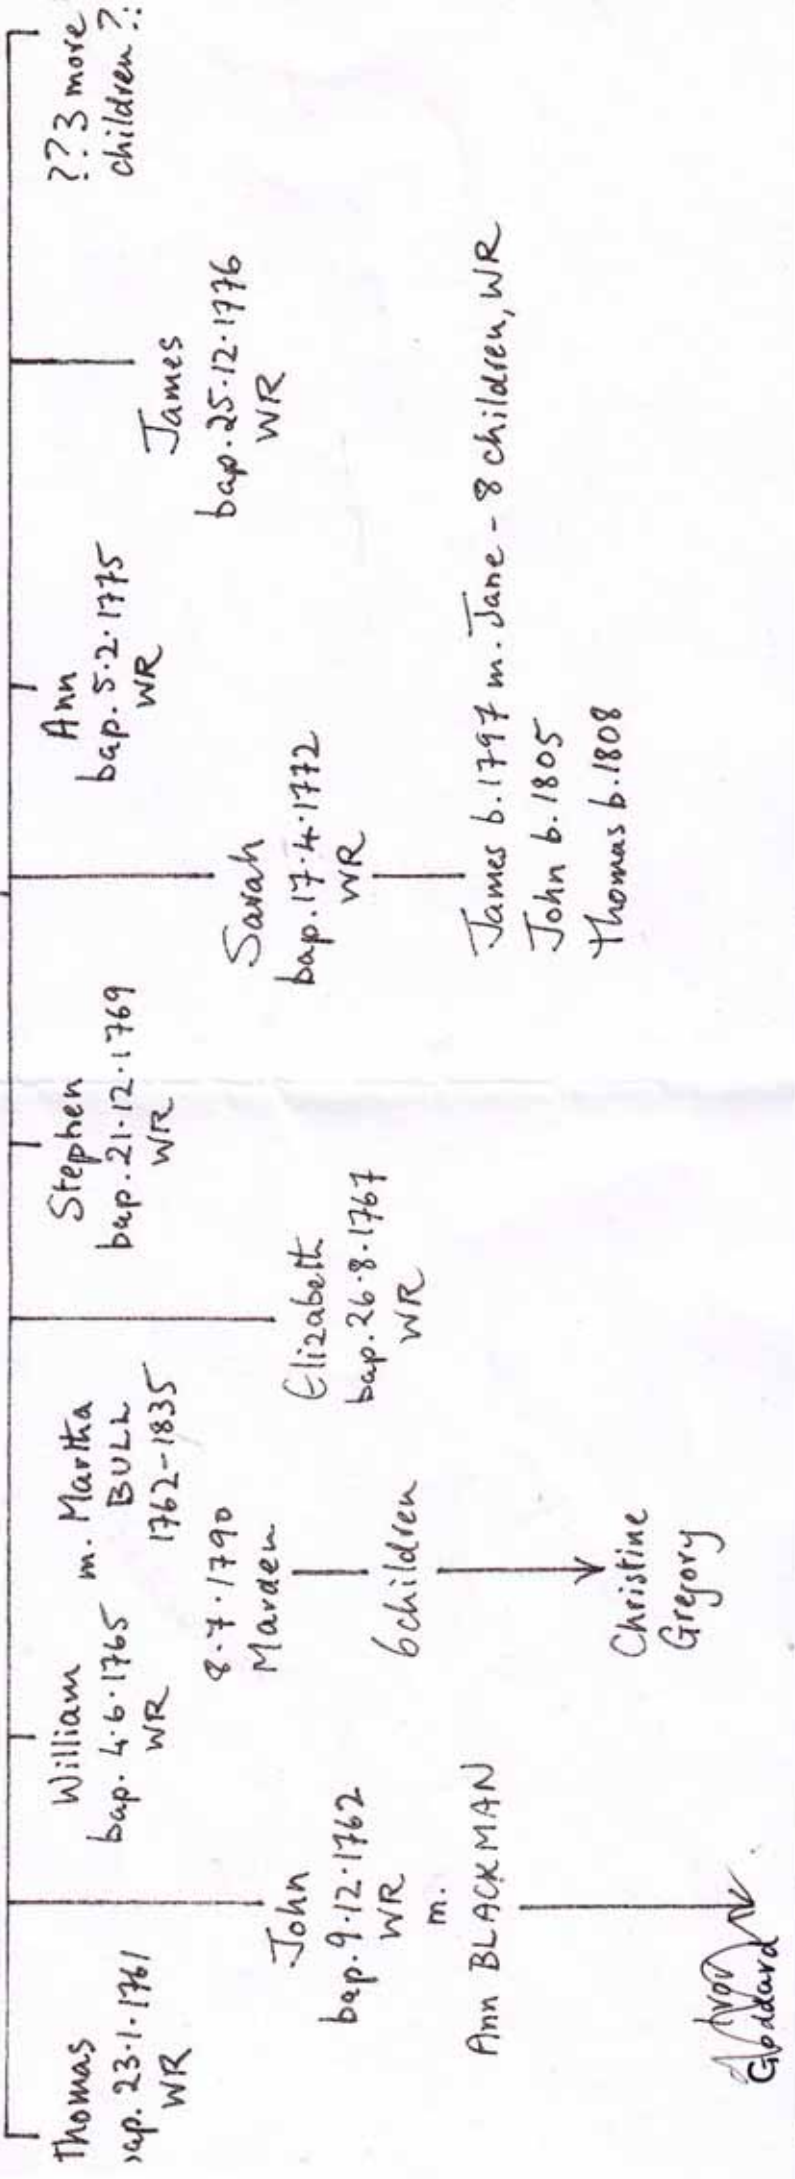 Thomas
ap. 23.1.1761
WR
John
bap. 9.12.1762
WR
m.
Ann BLACKMAN
Goddard
William
bap. 4.6.1765
WR
m. Martha
BULL
1762-1835
8.7.1790
Marden
6 children
Christine
Gregory
Elizabeth
bap. 26.8.1767
WR
Stephen
bap. 21.12.1769
WR
Sarah
bap. 17.4.1772
WR
James b. 1797 m. Jane - 8 children, WR
John b. 1805
Thomas b. 1808
Ann
bap. 5.2.1775
WR
James
bap. 25.12.1776
WR
???3 more
children?: